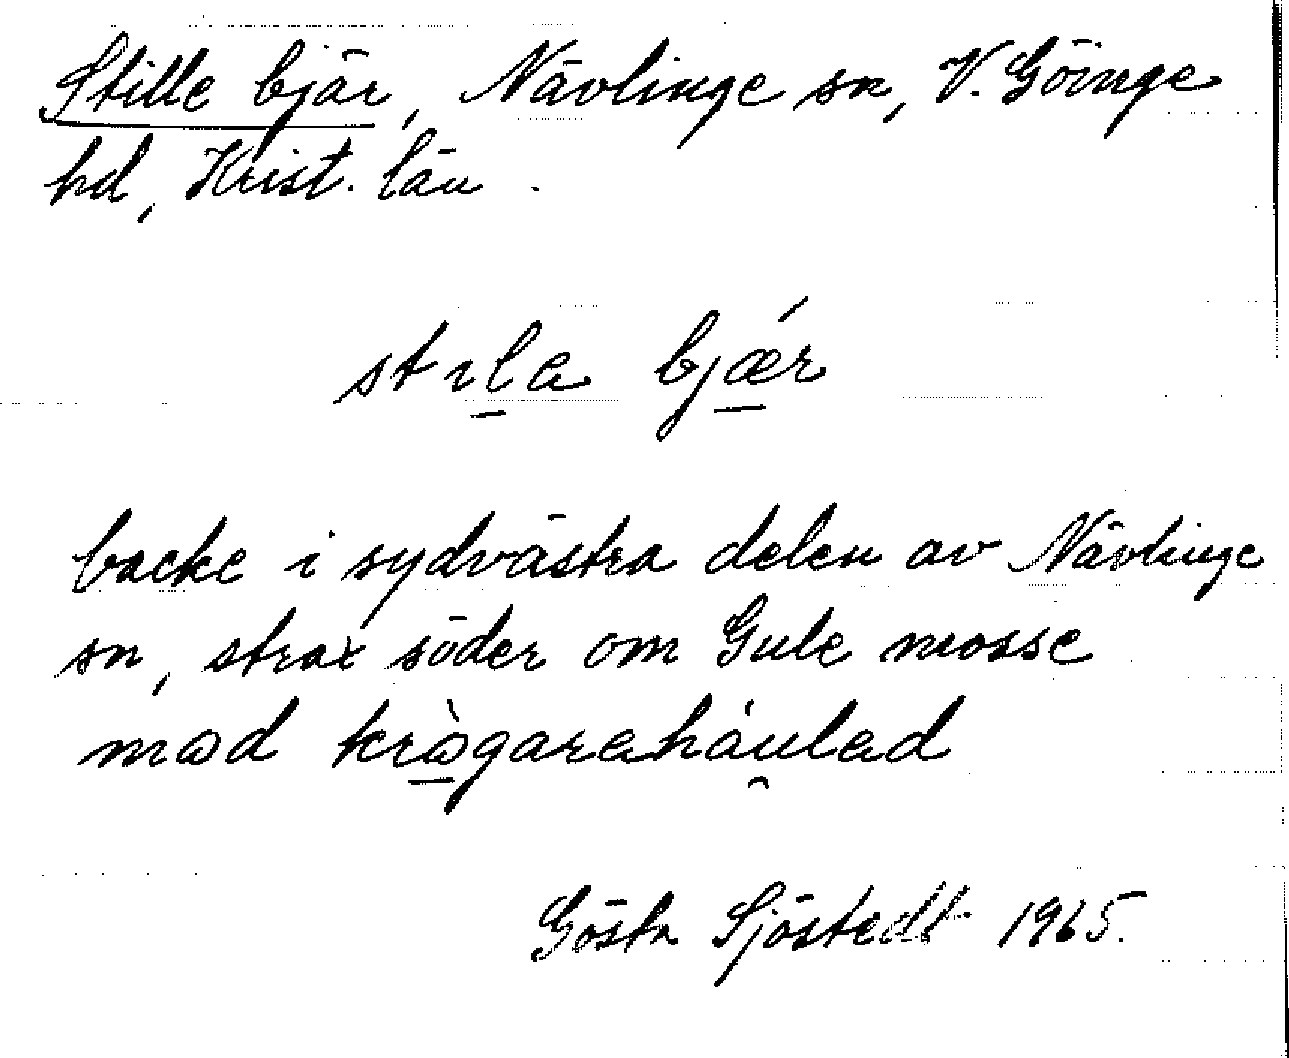 Stille bjär, Nävlinge sn, V. Göinge
hd, Krist. län.
stıla bjǽr
backe i sydvästra delen av Nävlinge
sn, strax söder om Gule mosse
mod krògaraháulad
Gösta Sjöstedt 1965.